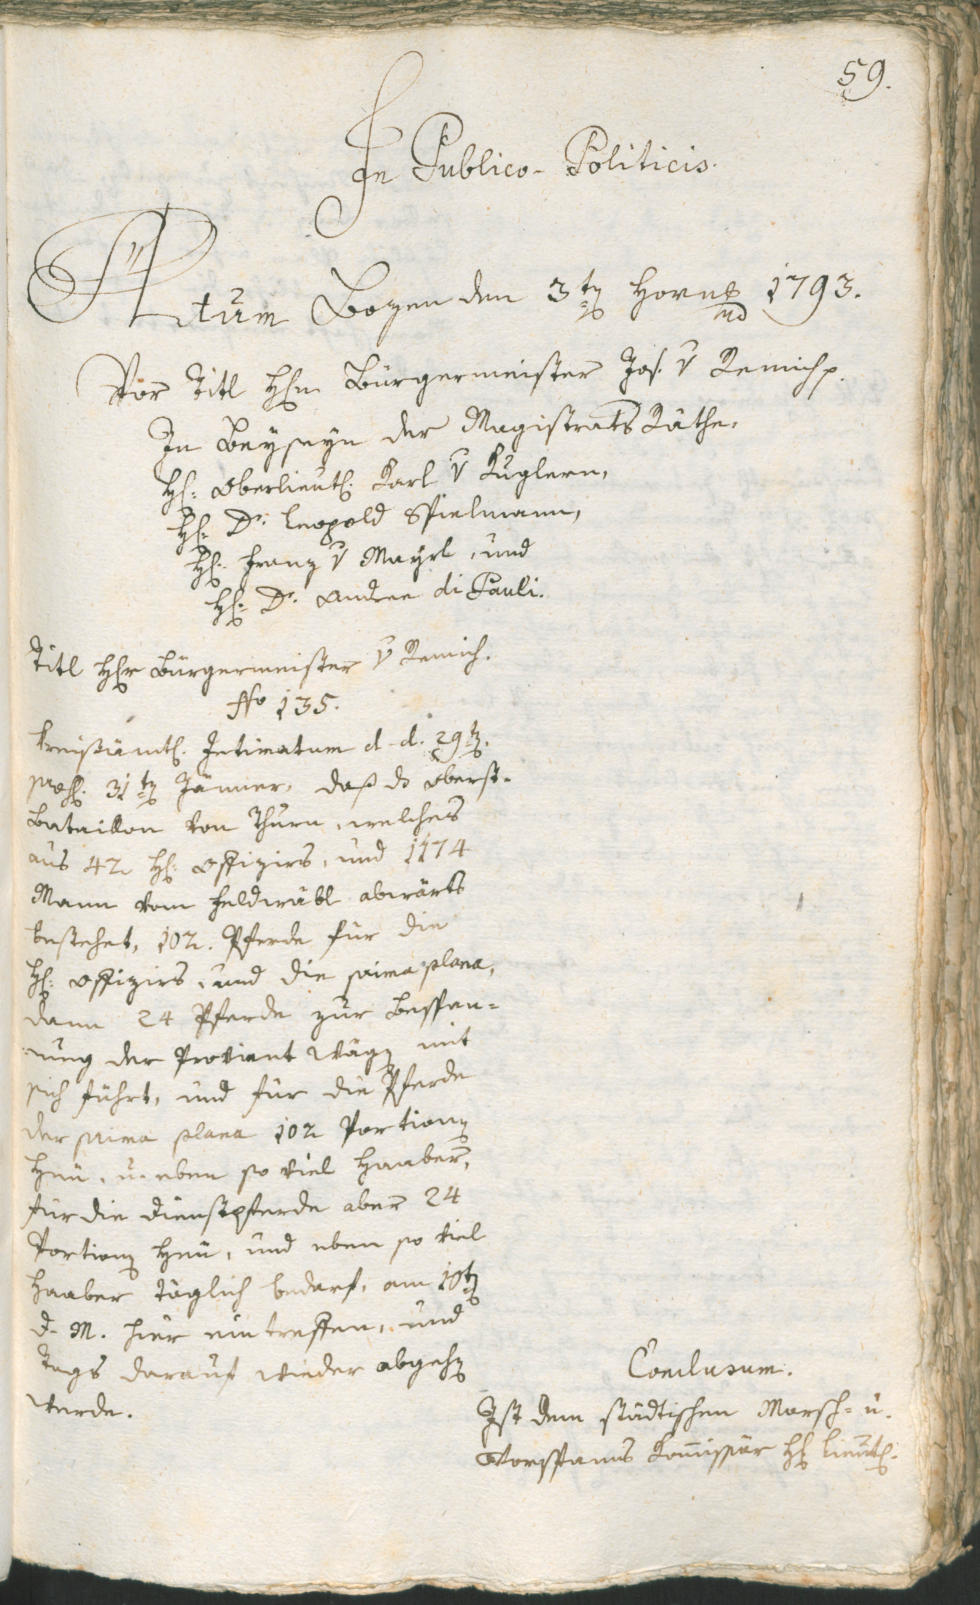 59.
In Publico-Politicis.
Actum Bozen den 3tn Hornungs 1793.
Vor Titl Hhn Bürgermeister Jos. v Remich p.
In Beyseyn der Magistrats Räthe,
Hh: Oberlieut: Karl v Kuglern,
Hh: Dr. Leopold Spielmann,
Hh: Franz v Mayrl, und
Hh: Dr. Andree di Pauli.
Titl Hhr Bürgermeister v Remich.
No 135.
Kreisämtl. Intimatum d. d. 29tn.
præs. 31tn Jänner, daß ds Oberst-
Bataillon von Thurn, welches
aus 42 Hh: Offiziers, und 1174
Mann vom Feldwäbl abwärts
bestehet, 102. Pferde für die
Hh: Offiziers, und die prima plana,
dann 24 Pferde zur Bespan-
nung der Proviant Wägn mit
sich führt, und für die Pferde
der prima plana 102 Portionn
Heu, u. eben so viel Haaber,
für die Dienstpferde aber 24
Portionn Heu, und eben so viel
Haaber täglich bedarf, am 10tn
d. M. hier eintreffen, und
Tags darauf wieder abgehn
werde.
Conclusum.
Ist dem städtischen Marsch- u.
Vorspanns Kommissär Hh Lieut: